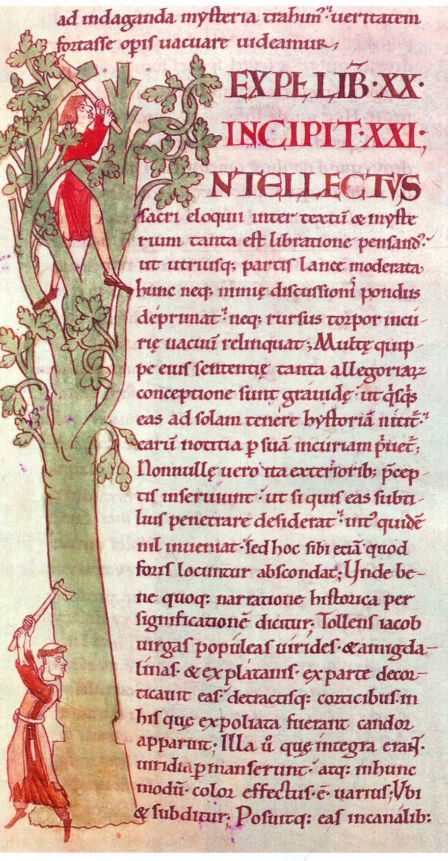 ad indaganda mysteria trahim᷒ ueritatem
fortasse opis uacuare uideamur;
EXPƐ LIB̄·XX·
INCIPIT·XXI;
NTELLECTVS
sacri eloquii inter textū & myste
rium tanta est libratione pensand᷒·
ut utriusq; partis lance moderata
hunc neq; nimię discussionī pondus
deprimat· neq; rursus torpor incu
rię uacuū relinquat; Multę quip
pe eius sententię tanta allegoriaꝝ
conceptione sunt grauidę· ut q̄sq̄s
eas ad solam tenere hystoriā nitit᷒·
earū notitia p suā incuriam p̄uet᷒;
Nonnullę uero ita exteriorib; p̄cep
tis inseruiunt· ut si quis eas subti
lius penetrare desiderat· int᷒ quidē
nil inueniat· sed hoc sibi etiā quod
foris locuntur abscondat; Vnde be-
ne quoq; narratione historica per
significationē dicitur; Tollens iacob
uirgas populeas uirides· & amigda-
linas· & ex platanis· ex parte decor-
ticauit eas· detractisq; corticibus in
his quę expoliata fuerant candor
apparuit; Illa ū quę integra erant·
uiridia pmanserunt· atq; inhunc
modū· color effectus·ē· uarius; Vbi
& subditur; Posuitq; eas incanalib: